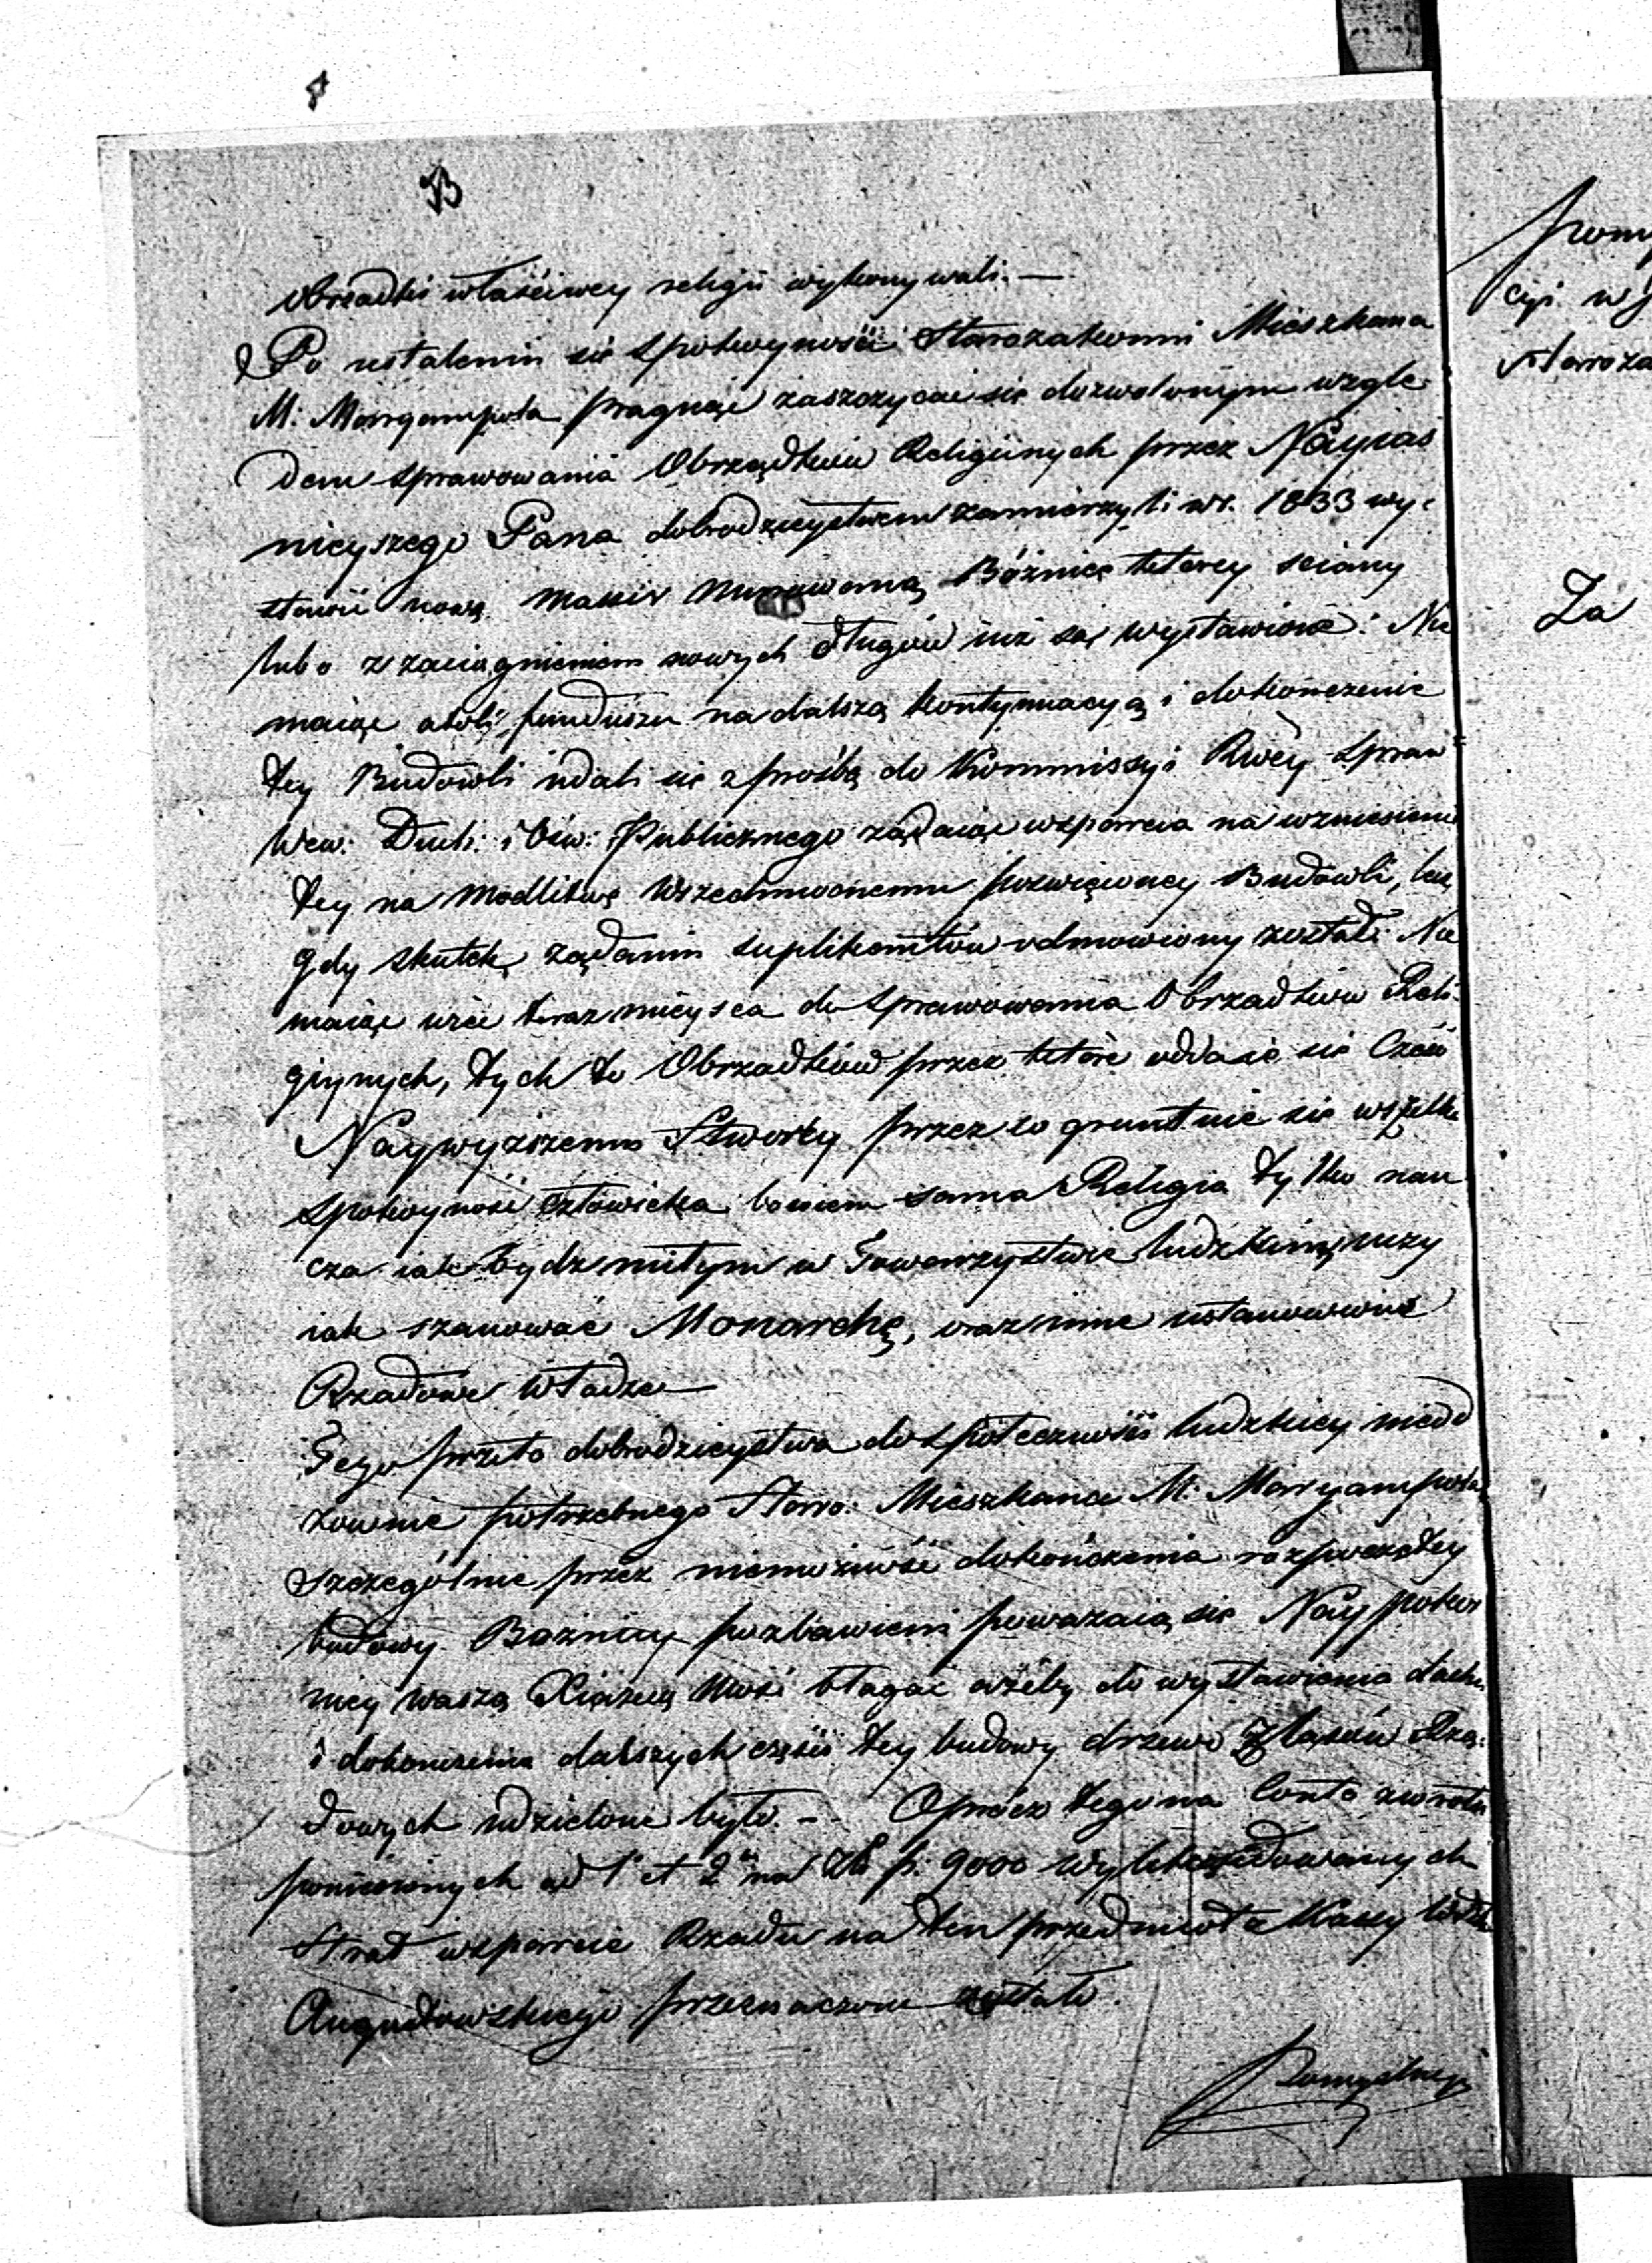 B
obrządki właściwey religii wykonywali. —
Po ustaleniu się spokoyności Starozakonni Mieszkańce
M: Maryampola pragnąc zaszczycać się dozwolonym wzglę-
dem sprawowania Obrządków Religiinych przez Nayias
nieyszego Pana dobrodzieystwem zamierzyli w r. 1833 wy-
stawić nową massiv murowaną Bóżnicę którey sciany
lubo z zaciągnieniem nowych długów iuż są wystawione: Nie
maiąc atoli funduszu na dalszą kontynuacyą i dokończenie
tey Budowli udali się z prośbą do Kommissyi Rwéy Spraw
Wew: Duch: i Ośw: Publicznego żądaiąc wsparcia na wzniesienie
tey na modlitwę Wszechmocnemu poświęconey Budowli, lecz
gdy skutek żądaniu suplikantów odmowiony został: Nie
maiąc więc teraz mieysca do sprawowania Obrządków Reli-
giynych, tych to Obrządków przez które oddaie się Cześć
Naywyższemu Stworcy przez co gruntuie się wszelka
spokoyność człowieka bowiem sama Religia tylko nau
cza iak bydz miłym w Towarzystwie ludzkim, uczy
iak szanować Monarchę, oraz inne ustanowione
Rządowe Władze —
Tego przeto dobrodzieystwa do społeczności ludzkiey nieod
zownie potrzebnego Staro: Mieszkańce M: Maryampola
szczególnie przez niemożność dokończenia rozpoczętey
budowy Bożnicy pozbawieni poważaią się Naypokor
niey Waszą Xiążęcą Mość błagać ażeby do wystawienia dachu
i dokończenia dalszych części tey budowy drzewo z lasów Rzą-
dowych udzielone było. — Oprócz tego na Conto zwrotu
poniesionych ad 1° et 2° na Zł p: 9000 wylikwidowanych
Strat wsparcie Rządu na ten przedmiot z Kassy Wdztwa
Augustowskiego przeznaczone zostało.
pomy
cyi w
Staroza
Za